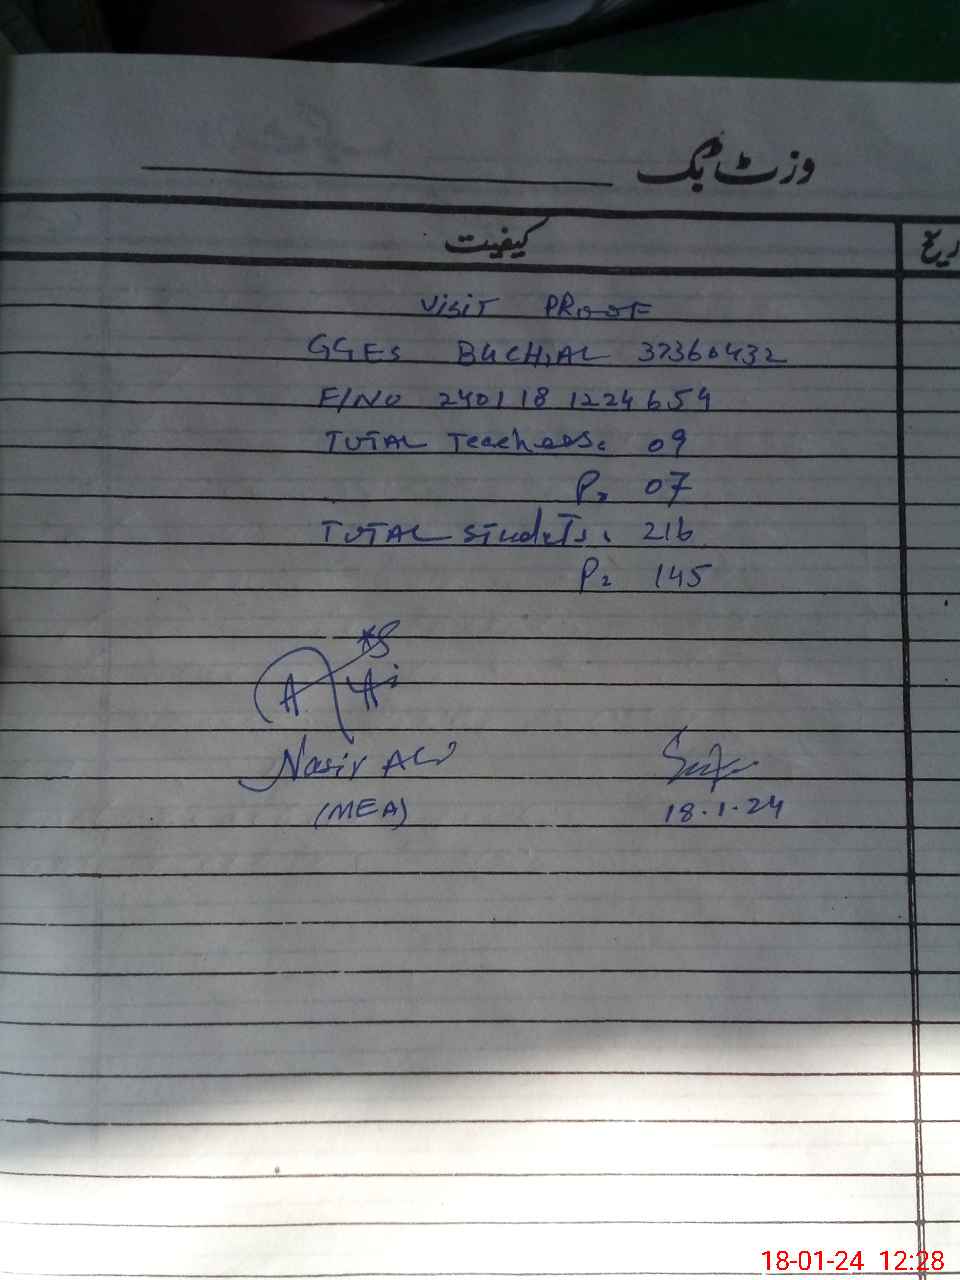 وزٹ بک
کیفیت
Visit PROOF
GGES BUCHIAL 37360432
F/NO 240118 1224654
TOTAL Teachers: 09
P: 07
TOTAL Students: 216
P: 145
Nasir Ali
(MEA)
18.1.24
18-01-24 12:28